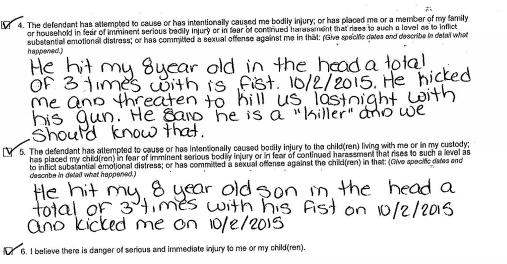 4. The defendant has attempted to cause or has intentionally caused me bodily injury; or has placed me or a member of my family
or household in fear of imminent serious bodily injury or in fear of continued harassment that rises to such a level as to inflict
substantial emotional distress; or has committed a sexual offense against me in that: (Give specific dates and describe in detail what
happened.)
He hit my 8 year old in the head a total
of 3 times with is fist. 10/2/2015. He kicked
me and threaten to kill us lastnight with
his gun. He said he is a "killer" and we
should know that.
5. The defendant has attempted to cause or has intentionally caused bodily injury to the child(ren) living with me or in my custody;
has placed my child(ren) in fear of imminent serious bodily injury or in fear of continued harassment that rises to such a level as
to inflict substantial emotional distress; or has committed a sexual offense against the child(ren) in that: (Give specific dates and
describe in detail what happened.)
He hit my 8 year old son in the head a
total of 3 times with his fist on 10/2/2015
and kicked me on 10/2/2015
6. I believe there is danger of serious and immediate injury to me or my child(ren).